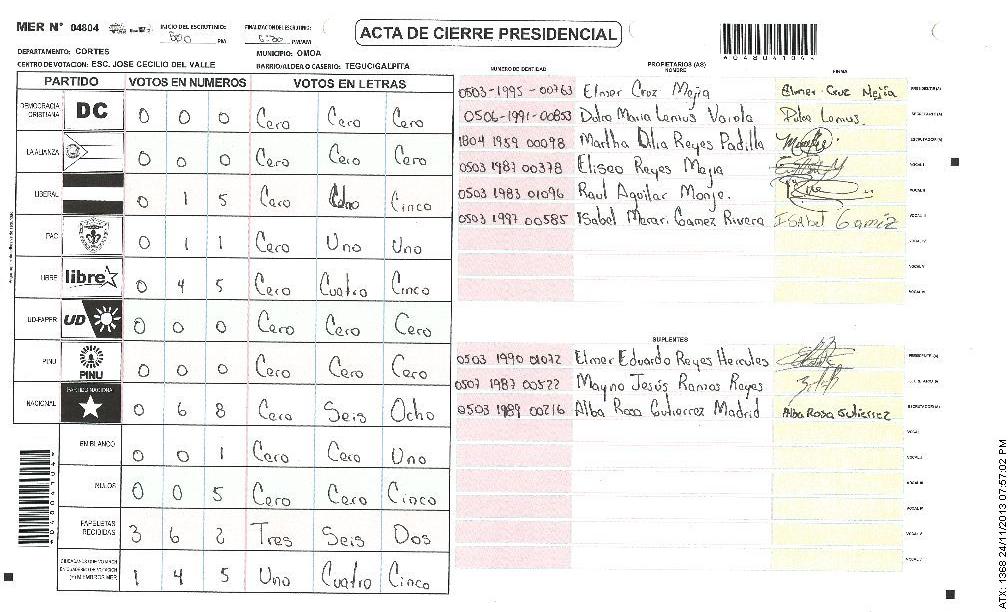 MER N° 04804
INICIO DEL ESCRUTINIO: PM
FINALIZACION DEL ESCRUTINIO: PM/AM
ACTA DE CIERRE PRESIDENCIAL
DEPARTAMENTO: CORTES
MUNICIPIO: OMOA
CENTRO DE VOTACION: ESC. JOSE CECILIO DEL VALLE
BARRIO/ALDEA O CASERIO: TEGUCIGALPITA
PARTIDO VOTOS EN NUMEROS VOTOS EN LETRAS
DEMOCRACIA CRISTIANA DC 0 0 0 Cero Cero Cero
LA ALIANZA 0 0 0 Cero Cero Cero
LIBERAL 0 1 5 Cero Uno Cinco
PAC 0 1 1 Cero Uno Uno
LIBRE libre 0 4 5 Cero Cuatro Cinco
UD-FAPER UD 0 0 0 Cero Cero Cero
PINU PINU 0 0 0 Cero Cero Cero
NACIONAL PARTIDO NACIONAL 0 6 8 Cero Seis Ocho
EN BLANCO 0 0 1 Cero Cero Uno
NULOS 0 0 5 Cero Cero Cinco
PAPELETAS RECIBIDAS 3 6 2 Tres Seis Dos
CIUDADANOS QUE VOTARON EN CUADERNO DE VOTACION (+) MIEMBROS MER 1 4 5 Uno Cuatro Cinco
NUMERO DE IDENTIDAD PROPIETARIOS (AS) NOMBRE FIRMA
0503-1995-00763 Elmer Cruz Mejia Elmer Cruz Mejía PRESIDENTE(A)
0506-1991-00853 Dulce Maria Lemus Varela Dulce Lemus SECRETARIO(A)
1804 1959 00098 Martha Dilia Reyes Padilla ESCRUTADOR(A)
0503 1987 00378 Eliseo Reyes Mejia VOCAL I
0503 1983 01096 Raul Aguilar Monje. VOCAL II
0503 1997 00585 Isabel Merari Gamez Rivera Isabel Gamez VOCAL III
VOCAL IV
VOCAL V
VOCAL VI
SUPLENTES
0503 1990 01072 Elmer Eduardo Reyes Hercules PRESIDENTE (A)
0507 1987 00522 Mayno Jesús Ramos Reyes SECRETARIO(A)
0503 1989 00216 Alba Rosa Gutierrez Madrid Alba Rosa Gutierrez ESCRUTADOR(A)
VOCAL I
VOCAL II
VOCAL III
VOCAL IV
VOCAL V
ATX: 1368 24/11/2013 07:57:02 PM